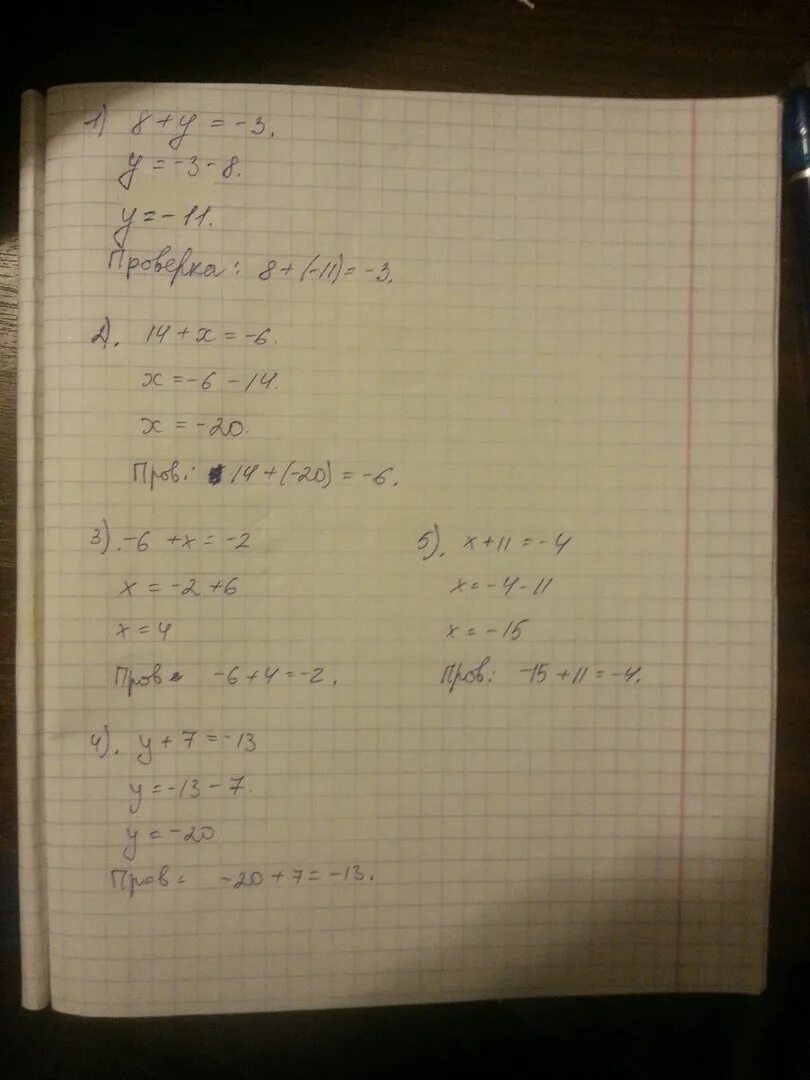 1) 8 + y = -3.
y = -3 - 8.
y = -11.
Проверка: 8 + (-11) = -3.
2). 14 + x = -6.
x = -6 - 14.
x = -20.
Пров: 14 + (-20) = -6.
3). -6 + x = -2
x = -2 + 6
x = 4
Пров: -6 + 4 = -2.
4). y + 7 = -13
y = -13 - 7.
y = -20
Пров: -20 + 7 = -13.
5). x + 11 = -4
x = -4 - 11
x = -15
Пров: -15 + 11 = -4.